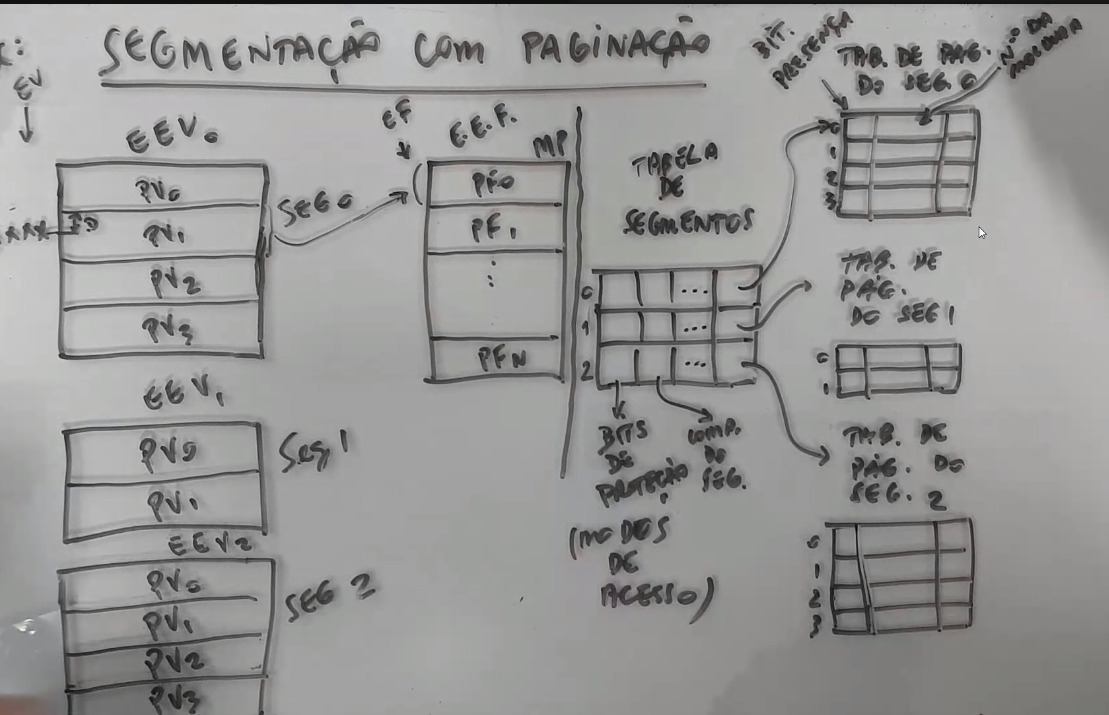 SEGMENTAÇÃO COM PAGINAÇÃO
EX:
EV
EEV0
PV0
PV1
PV2
PV3
SEG 0
EEV1
PV0
PV1
SEG 1
EEV2
PV0
PV1
PV2
PV3
SEG 2
EF
E.E.F.
MP
PF0
PF1
⋮
PFN
TABELA
DE
SEGMENTOS
0
...
1
...
2
...
BITS
DE
PROTEÇÃO
(MODOS
DE
ACESSO)
COMP.
DO
SEG.
BIT.
PRESENÇA
TAB. DE PAG.
DO SEG. 0
N.º DA
MOLDURA
0
1
2
3
TAB. DE
PÁG.
DO SEG 1
0
1
TAB. DE
PÁG. DO
SEG. 2
0
1
2
3